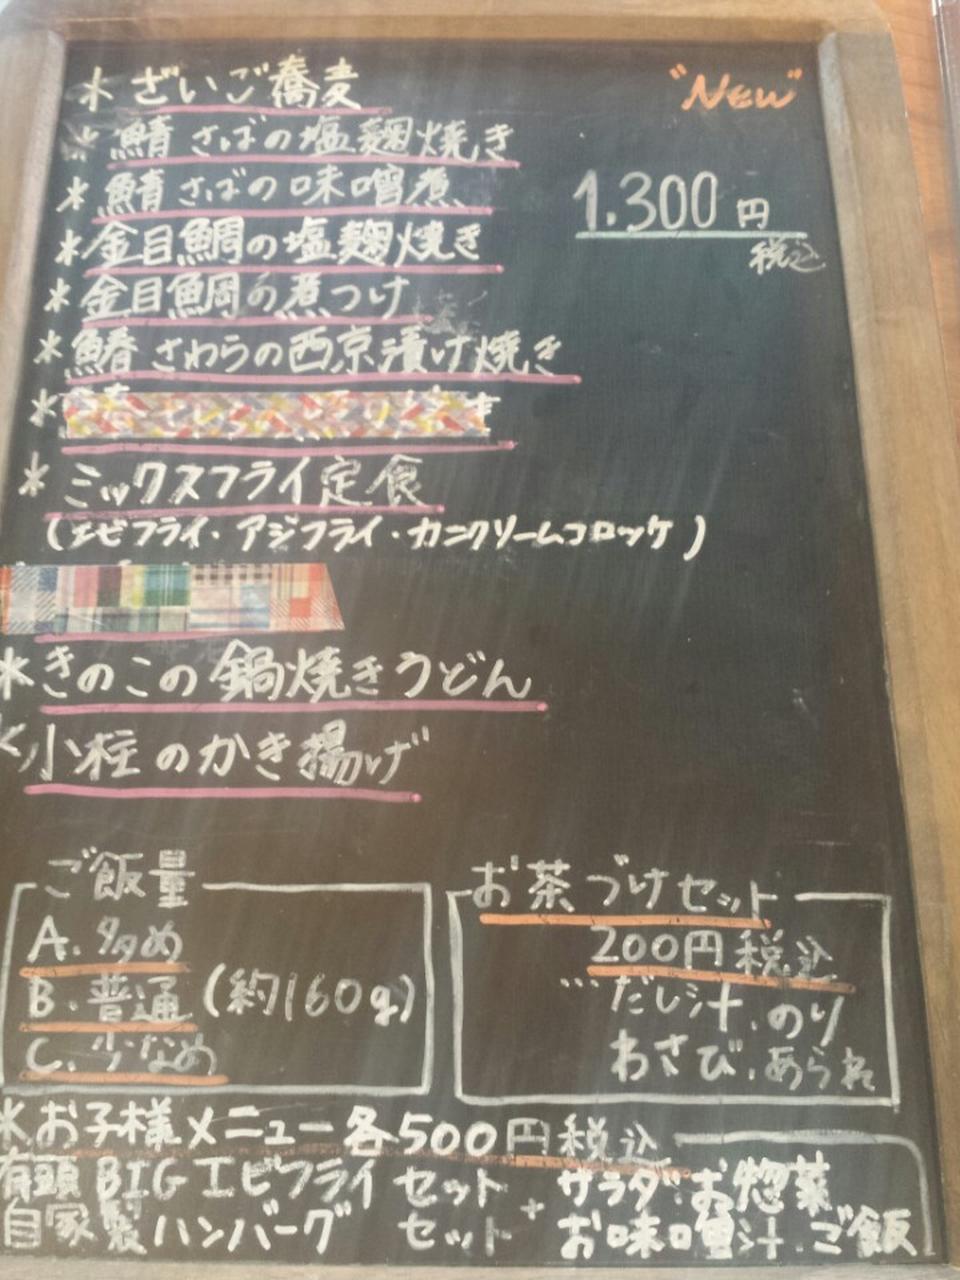 * ざいご蕎麦 "New"
* 鯖さばの塩麹焼き
* 鯖さばの味噌煮 1.300円
税込
* 金目鯛の塩麹焼き
* 金目鯛の煮つけ
* 鰆さわらの西京漬け焼き
*
* ミックスフライ定食
(エビフライ・アジフライ・カニクリームコロッケ)
* きのこの鍋焼きうどん
* 小柱のかき揚げ
ご飯量
A. 多め
B. 普通 (約160g)
C. 少なめ
お茶づけセット
200円 税込
…だし汁.のり
わさび.あられ
* お子様メニュー 各500円 税込
有頭BIGエビフライ セット + サラダ.お惣菜
自家製ハンバーグ セット お味噌汁.ご飯